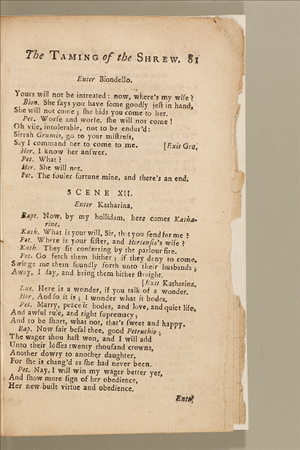 The TAMING of the SHREW. 81
Enter Biondello.
Yours will not be intreated: now, where's my wife?
Bion. She says you have some goodly jest in hand,
She will not come; she bids you come to her.
Pet. Worse and worse, she will not come!
Oh vile, intolerable, not to be endur'd:
Sirrah Grumio, go to your mistress,
Say I command her to come to me. [Exit Gru.
Hor. I know her answer.
Pet. What?
Hor. She will not.
Pet. The fouler fortune mine, and there's an end.
SCENE XII.
Enter Katharina.
Bapt. Now, by my hollidam, here comes Katha-
rine.
Kath. What is your will, Sir, that you send for me?
Pet. Where is your sister, and Hortensio's wife?
Kath. They sit conferring by the parlour fire.
Pet. Go fetch them hither; if they deny to come,
Swinge me them soundly forth unto their husbands;
Away, I say, and bring them hither straight.
[Exit Katharina.
Luc. Here is a wonder, if you talk of a wonder.
Hor. And so it is; I wonder what it bodes.
Pet. Marry, peace it bodes, and love, and quiet life,
And awful rule, and right supremacy;
And to be short, what not, that's sweet and happy.
Bap. Now fair befal thee, good Petruchio;
The wager thou hast won, and I will add
Unto their losses twenty thousand crowns,
Another dowry to another daughter,
For she is chang'd as she had never been.
Pet. Nay, I will win my wager better yet,
And show more sign of her obedience,
Her new built virtue and obedience.
Enter